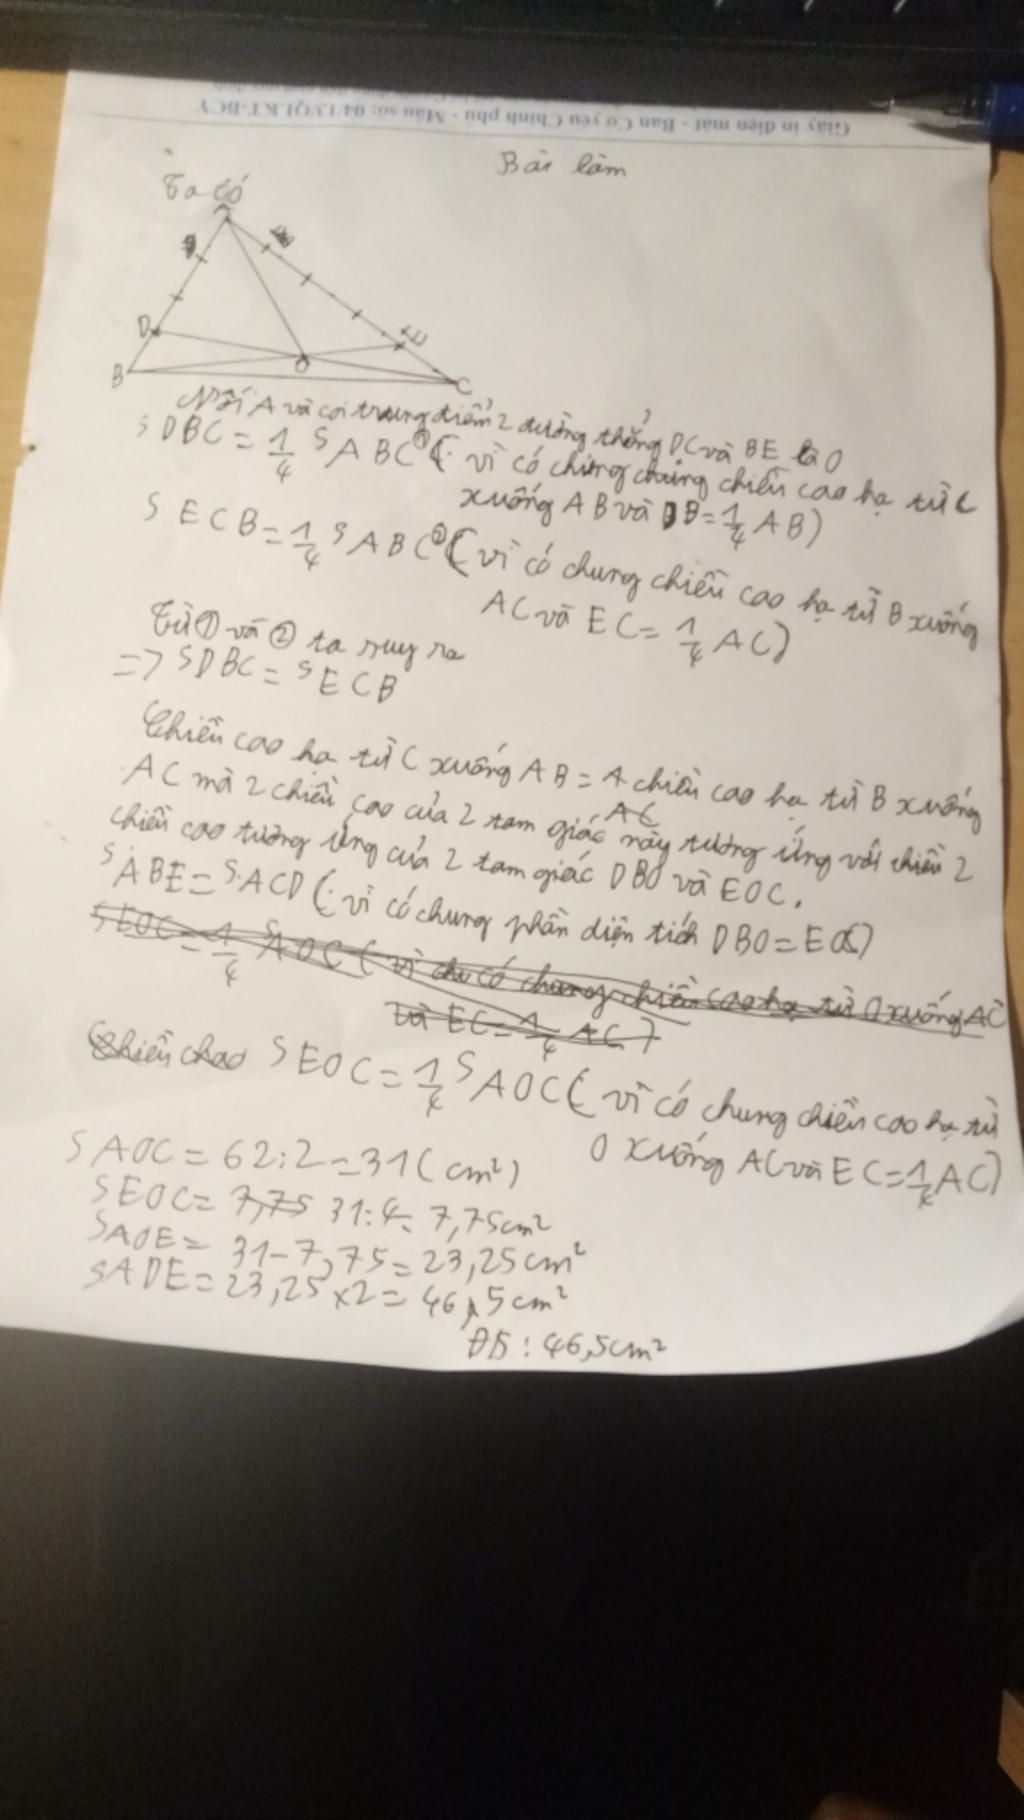 Giấy in điện mật - Ban Cơ yếu Chính phủ - Mẫu số: 04/13/QLKT-BCY
Bài làm
Ta có
A
D
E
B
O
C
Nối A và coi trung điểm 2 đường thẳng DC và BE là O
SDBC = 1/4 SABC ① (vì có chung chiều cao hạ từ C
xuống AB và DB = 1/4 AB)
SECB = 1/4 SABC ② (vì có chung chiều cao hạ từ B xuống
AC và EC = 1/4 AC)
Từ ① và ② ta suy ra
=> SDBC = SECB
Chiều cao hạ từ C xuống AB = 4 chiều cao hạ từ B xuống
AC
AC mà 2 chiều cao của 2 tam giác này tương ứng với chiều 2
chiều cao tương ứng của 2 tam giác DBO và EOC.
SABE = SACD (vì có chung phần diện tích DBO = EOC)
SEOC = 1/4 SAOC (vì có chung chiều cao hạ từ O xuống AC
và EC = 1/4 AC)
Chiều cao SEOC = 1/4 SAOC (vì có chung chiều cao hạ từ
O xuống AC và EC = 1/4 AC)
SAOC = 62:2 = 31 (cm²)
SEOC = 7,75 31:4 = 7,75cm²
SAOE = 31 - 7,75 = 23,25cm²
SADE = 23,25 x 2 = 46,5cm²
ĐS: 46,5cm²